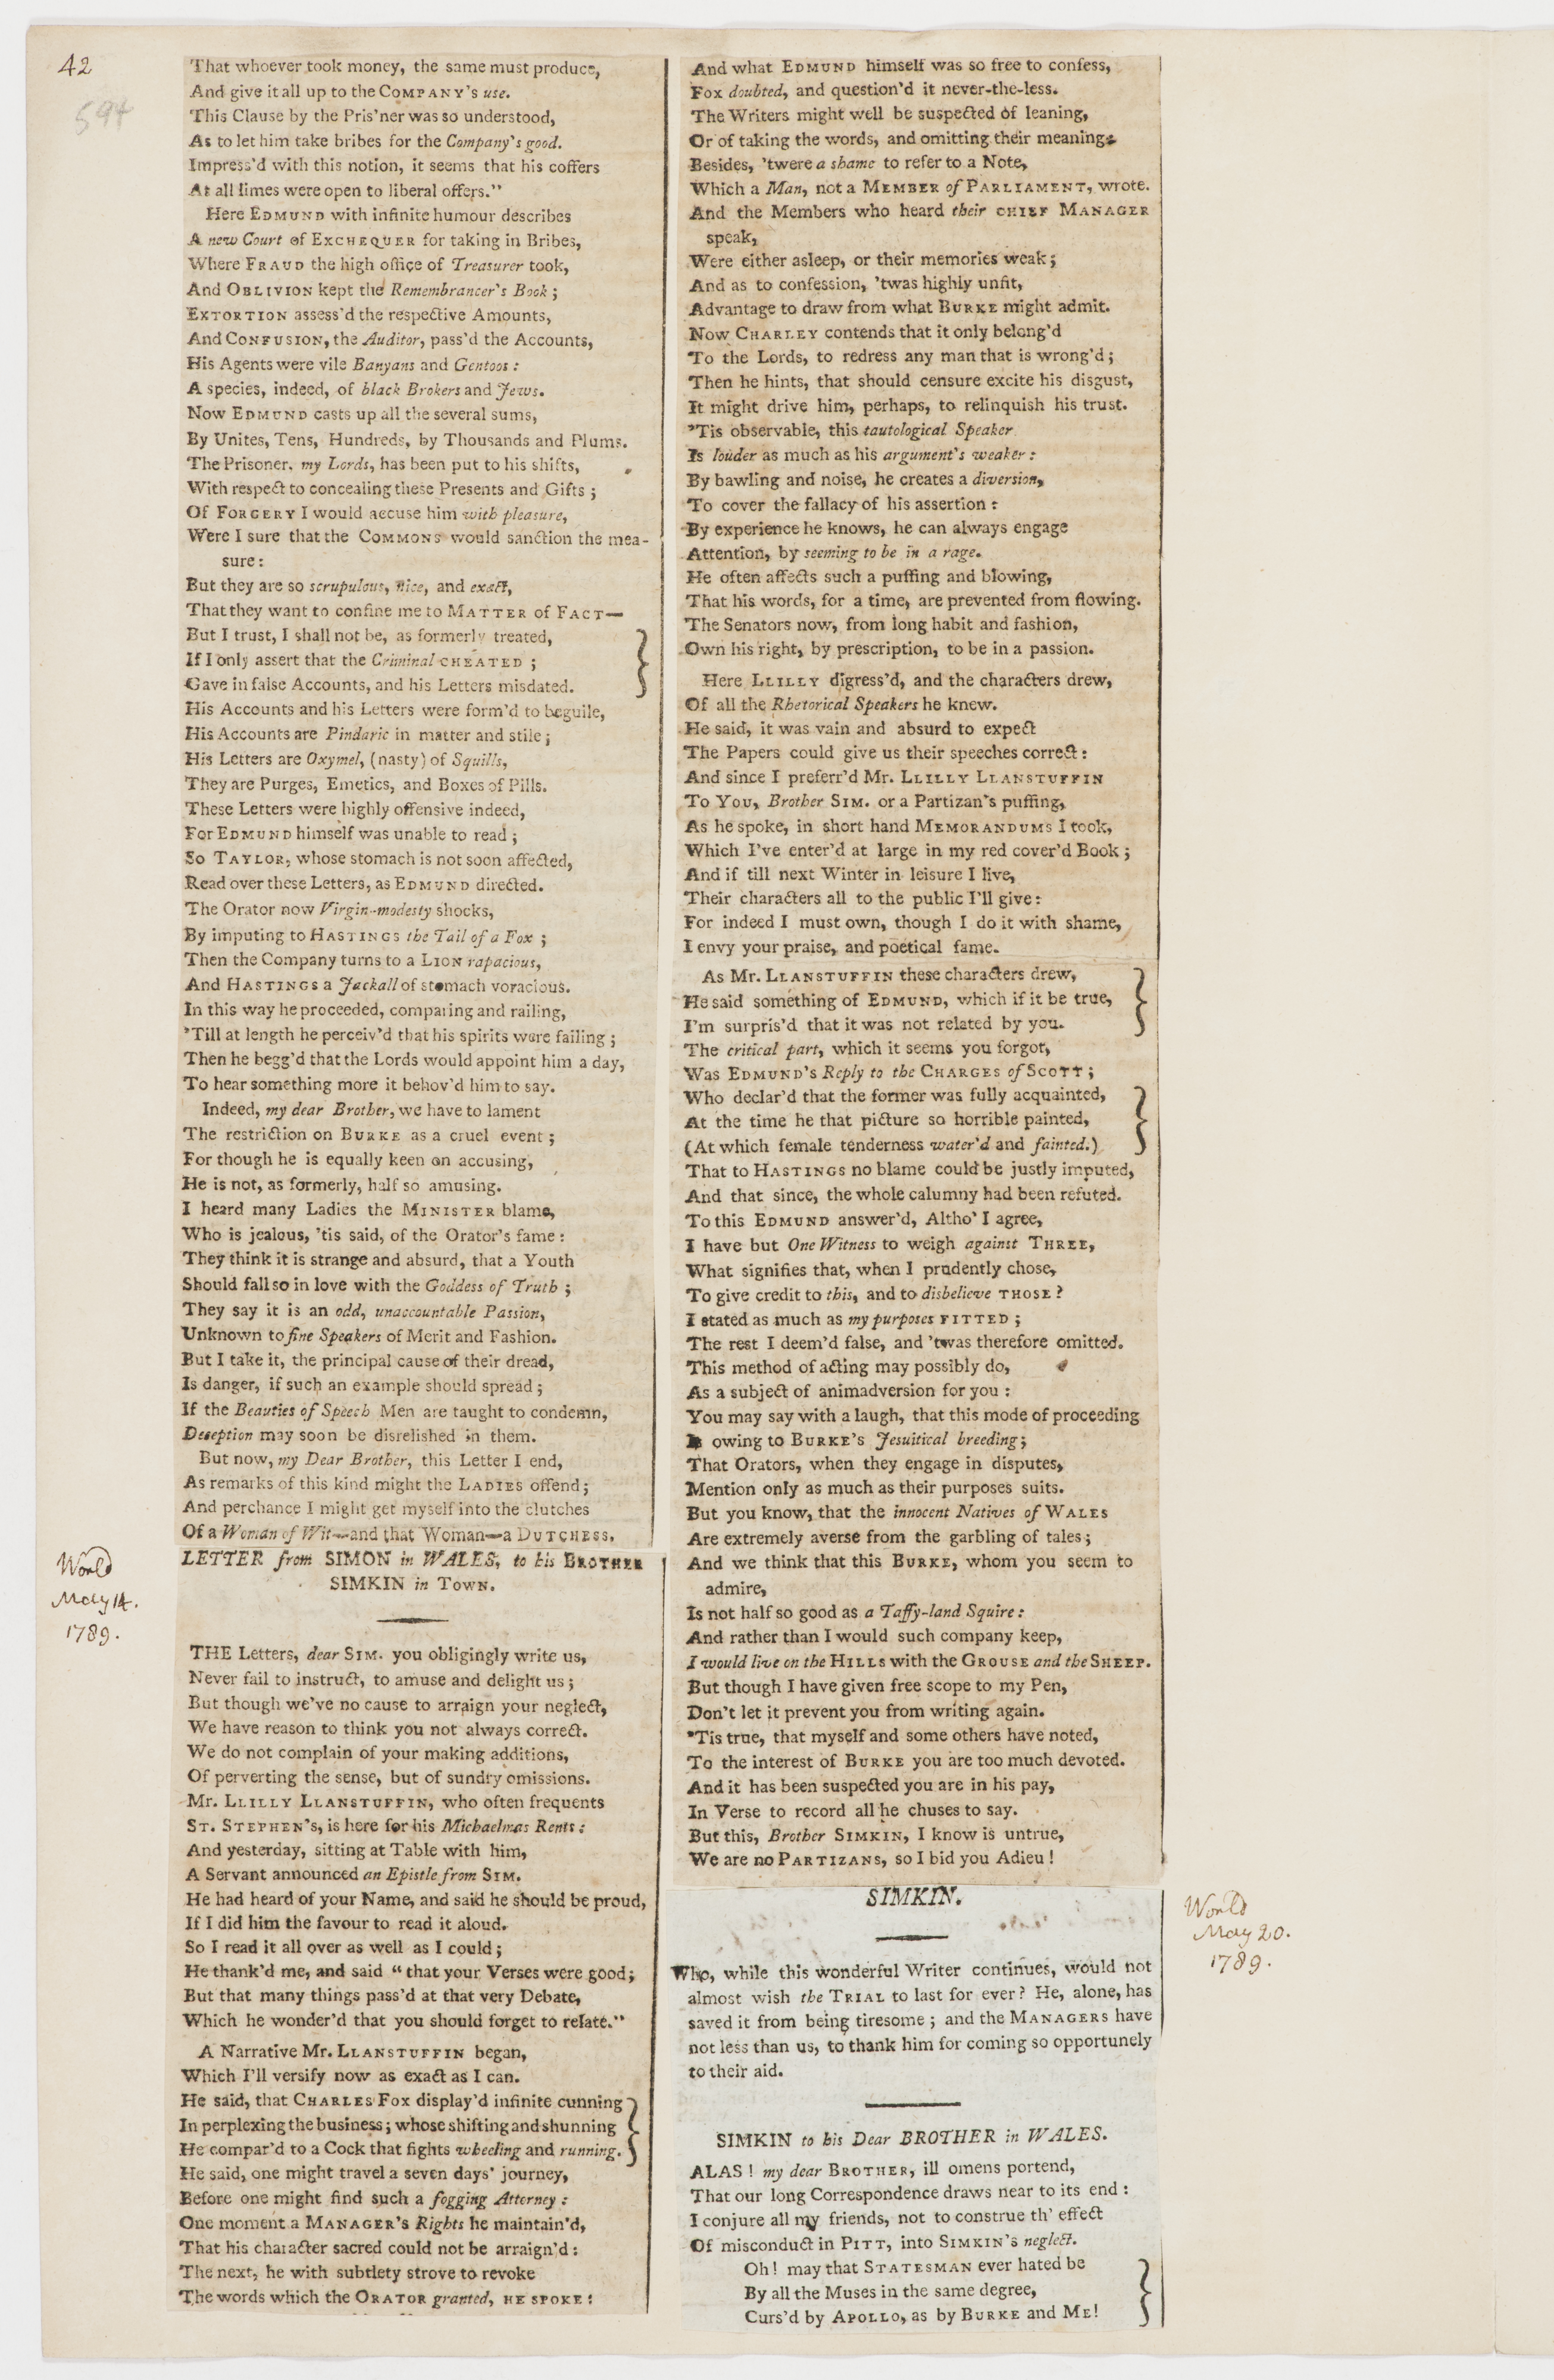 42
594
That whoever took money, the same must produce,
And give it all up to the COMPANY's use.
This Clause by the Pris'ner was so understood,
As to let him take bribes for the Company's good.
Impress'd with this notion, it seems that his coffers
At all times were open to liberal offers."
Here EDMUND with infinite humour describes
A new Court of EXCHEQUER for taking in Bribes,
Where FRAUD the high office of Treasurer took,
And OBLIVION kept the Remembrancer's Book;
EXTORTION assess'd the respective Amounts,
And CONFUSION, the Auditor, pass'd the Accounts,
His Agents were vile Banyans and Gentoos:
A species, indeed, of black Brokers and Jews.
Now EDMUND casts up all the several sums,
By Unites, Tens, Hundreds, by Thousands and Plums.
The Prisoner, my Lords, has been put to his shifts,
With respect to concealing these Presents and Gifts;
Of FORGERY I would accuse him with pleasure,
Were I sure that the COMMONS would sanction the mea-
sure:
But they are so scrupulous, nice, and exact,
That they want to confine me to MATTER of FACT—
But I trust, I shall not be, as formerly treated,
If I only assert that the Criminal CHEATED;
Gave in false Accounts, and his Letters misdated.
His Accounts and his Letters were form'd to beguile,
His Accounts are Pindaric in matter and stile;
His Letters are Oxymel, (nasty) of Squills,
They are Purges, Emetics, and Boxes of Pills.
These Letters were highly offensive indeed,
For EDMUND himself was unable to read;
So TAYLOR, whose stomach is not soon affected,
Read over these Letters, as EDMUND directed.
The Orator now Virgin-modesty shocks,
By imputing to HASTINGS the Tail of a Fox;
Then the Company turns to a LION rapacious,
And HASTINGS a Jackall of stomach voracious.
In this way he proceeded, comparing and railing,
'Till at length he perceiv'd that his spirits were failing;
Then he begg'd that the Lords would appoint him a day,
To hear something more it behov'd him to say.
Indeed, my dear Brother, we have to lament
The restriction on BURKE as a cruel event;
For though he is equally keen on accusing,
He is not, as formerly, half so amusing.
I heard many Ladies the MINISTER blame,
Who is jealous, 'tis said, of the Orator's fame:
They think it is strange and absurd, that a Youth
Should fall so in love with the Goddess of Truth;
They say it is an odd, unaccountable Passion,
Unknown to fine Speakers of Merit and Fashion.
But I take it, the principal cause of their dread,
Is danger, if such an example should spread;
If the Beauties of Speech Men are taught to condemn,
Deception may soon be disrelished in them.
But now, my Dear Brother, this Letter I end,
As remarks of this kind might the LADIES offend;
And perchance I might get myself into the clutches
Of a Woman of Wit—and that Woman—a DUTCHESS.
World
May 14.
1789.
LETTER from SIMON in WALES, to his BROTHER
SIMKIN in TOWN.
THE Letters, dear SIM. you obligingly write us,
Never fail to instruct, to amuse and delight us;
But though we've no cause to arraign your neglect,
We have reason to think you not always correct.
We do not complain of your making additions,
Of perverting the sense, but of sundry omissions.
Mr. LLILLY LLANSTUFFIN, who often frequents
ST. STEPHEN's, is here for his Michaelmas Rents:
And yesterday, sitting at Table with him,
A Servant announced an Epistle from SIM.
He had heard of your Name, and said he should be proud,
If I did him the favour to read it aloud.
So I read it all over as well as I could;
He thank'd me, and said "that your Verses were good;
But that many things pass'd at that very Debate,
Which he wonder'd that you should forget to relate."
A Narrative Mr. LLANSTUFFIN began,
Which I'll versify now as exact as I can.
He said, that CHARLES FOX display'd infinite cunning
In perplexing the business; whose shifting and shunning
He compar'd to a Cock that fights wheeling and running.
He said, one might travel a seven days' journey,
Before one might find such a fogging Attorney:
One moment a MANAGER's Rights he maintain'd,
That his character sacred could not be arraign'd:
The next, he with subtlety strove to revoke
The words which the ORATOR granted, HE SPOKE:
And what EDMUND himself was so free to confess,
Fox doubted, and question'd it never-the-less.
The Writers might well be suspected of leaning,
Or of taking the words, and omitting their meaning.
Besides, 'twere a shame to refer to a Note,
Which a Man, not a MEMBER of PARLIAMENT, wrote.
And the Members who heard their CHIEF MANAGER
speak,
Were either asleep, or their memories weak;
And as to confession, 'twas highly unfit,
Advantage to draw from what BURKE might admit.
Now CHARLEY contends that it only belong'd
To the Lords, to redress any man that is wrong'd;
Then he hints, that should censure excite his disgust,
It might drive him, perhaps, to relinquish his trust.
'Tis observable, this tautological Speaker
Is louder as much as his argument's weaker:
By bawling and noise, he creates a diversion,
To cover the fallacy of his assertion:
By experience he knows, he can always engage
Attention, by seeming to be in a rage.
He often affects such a puffing and blowing,
That his words, for a time, are prevented from flowing.
The Senators now, from long habit and fashion,
Own his right, by prescription, to be in a passion.
Here LLILLY digress'd, and the characters drew,
Of all the Rhetorical Speakers he knew.
He said, it was vain and absurd to expect
The Papers could give us their speeches correct:
And since I preferr'd Mr. LLILLY LLANSTUFFIN
To YOU, Brother SIM. or a Partizan's puffing,
As he spoke, in short hand MEMORANDUMS I took,
Which I've enter'd at large in my red cover'd Book;
And if till next Winter in leisure I live,
Their characters all to the public I'll give:
For indeed I must own, though I do it with shame,
I envy your praise, and poetical fame.
As Mr. LLANSTUFFIN these characters drew,
He said something of EDMUND, which if it be true,
I'm surpris'd that it was not related by you.
The critical part, which it seems you forgot,
Was EDMUND's Reply to the CHARGES of SCOTT;
Who declar'd that the former was fully acquainted,
At the time he that picture so horrible painted,
(At which female tenderness water'd and fainted.)
That to HASTINGS no blame could be justly imputed,
And that since, the whole calumny had been refuted.
To this EDMUND answer'd, Altho' I agree,
I have but One Witness to weigh against THREE,
What signifies that, when I prudently chose,
To give credit to this, and to disbelieve THOSE?
I stated as much as my purposes FITTED;
The rest I deem'd false, and 'twas therefore omitted.
This method of acting may possibly do,
As a subject of animadversion for you:
You may say with a laugh, that this mode of proceeding
Is owing to BURKE's Jesuitical breeding;
That Orators, when they engage in disputes,
Mention only as much as their purposes suits.
But you know, that the innocent Natives of WALES
Are extremely averse from the garbling of tales;
And we think that this BURKE, whom you seem to
admire,
Is not half so good as a Taffy-land Squire:
And rather than I would such company keep,
I would live on the HILLS with the GROUSE and the SHEEP.
But though I have given free scope to my Pen,
Don't let it prevent you from writing again.
'Tis true, that myself and some others have noted,
To the interest of BURKE you are too much devoted.
And it has been suspected you are in his pay,
In Verse to record all he chuses to say.
But this, Brother SIMKIN, I know is untrue,
We are no PARTIZANS, so I bid you Adieu!
World
May 20.
1789.
SIMKIN.
Who, while this wonderful Writer continues, would not
almost wish the TRIAL to last for ever? He, alone, has
saved it from being tiresome; and the MANAGERS have
not less than us, to thank him for coming so opportunely
to their aid.
SIMKIN to his Dear BROTHER in WALES.
ALAS! my dear BROTHER, ill omens portend,
That our long Correspondence draws near to its end:
I conjure all my friends, not to construe th' effect
Of misconduct in PITT, into SIMKIN's neglect.
Oh! may that STATESMAN ever hated be
By all the Muses in the same degree,
Curs'd by APOLLO, as by BURKE and ME!